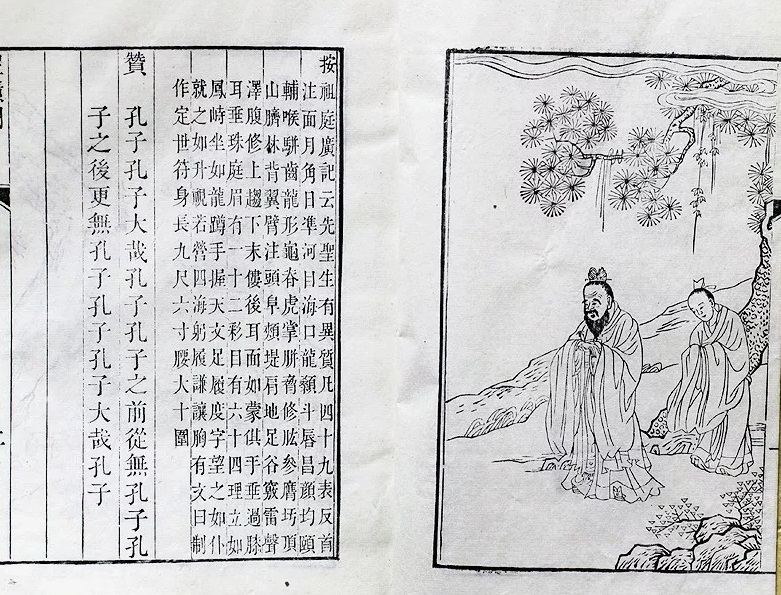 按祖庭廣記云先聖生有異質凡四十九表反首
注面月角日準河目海口龍顙斗唇昌顏均頤
輔喉駢齒龍形龜脊虎掌胼脅修肱參膺圩頂
山臍林背翼臂注頭阜頰堤肩地足谷竅雷聲
澤腹修上趨下末僂後耳面如蒙倛手垂過膝
耳垂珠庭眉有一十二彩目有六十四理立如
鳳峙坐如龍蹲手握天文足履度字望之如仆
就之如升視若營四海躬履謙讓胸有文曰制
作定世符身長九尺六寸腰大十圍
贊 孔子孔子大哉孔子孔子之前從無孔子孔
子之後更無孔子孔子孔子大哉孔子